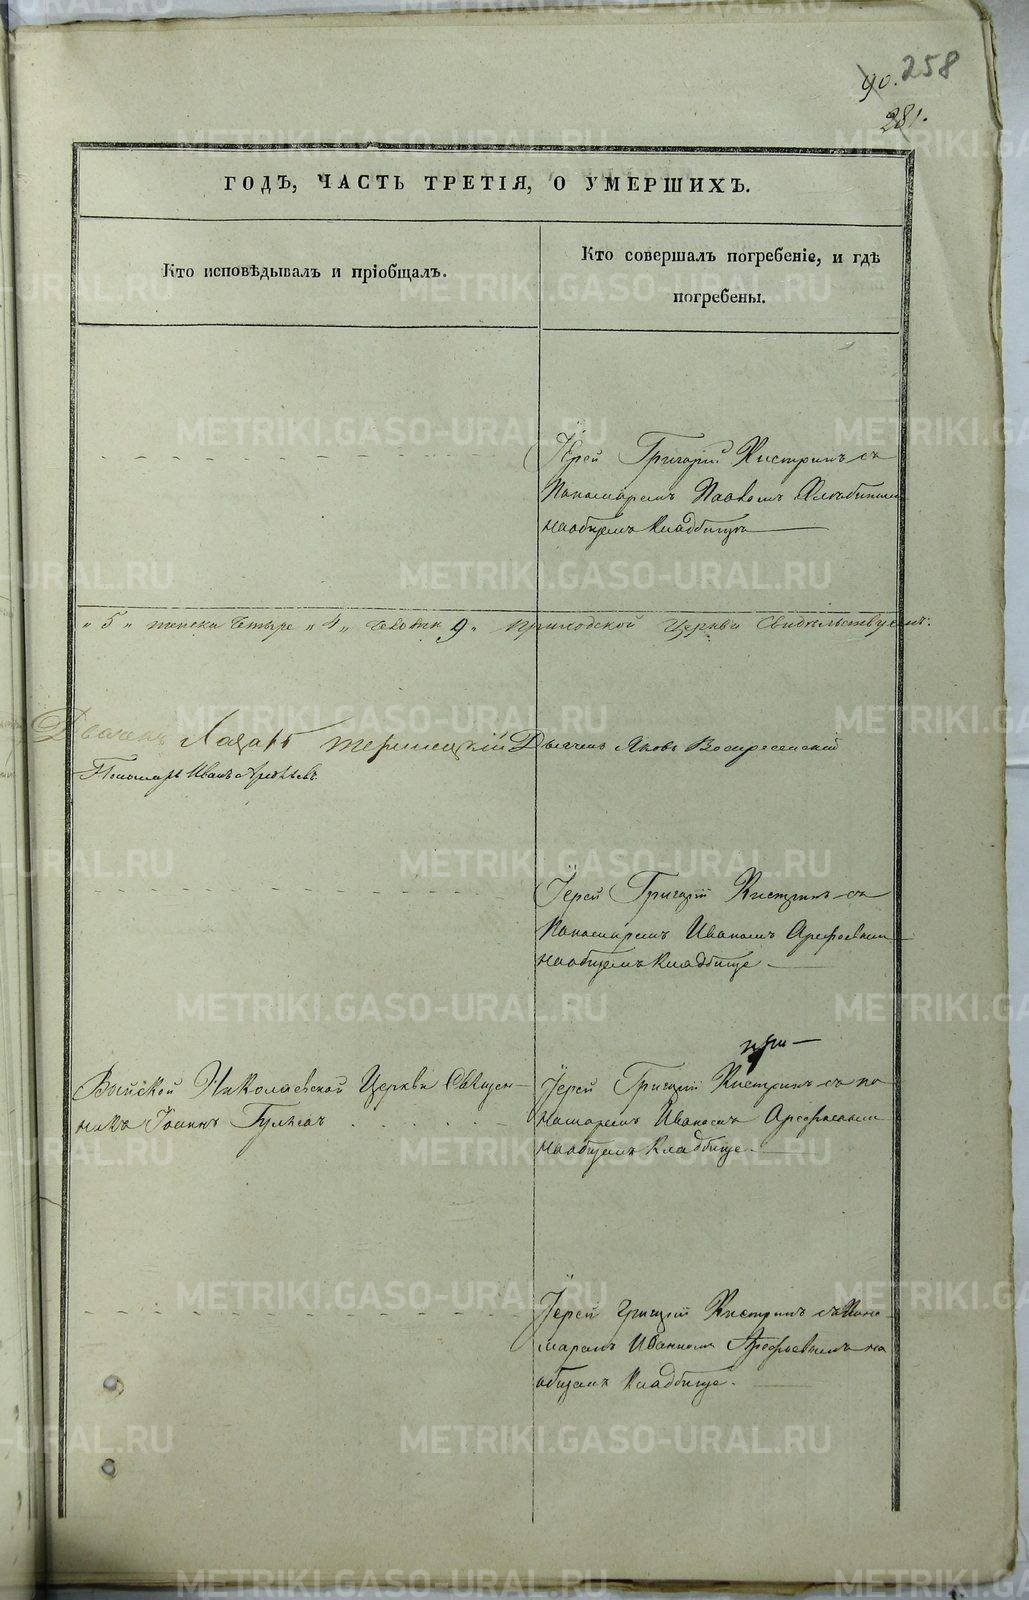 90. 258
281.
ГОДЪ, ЧАСТЬ ТРЕТІЯ, О УМЕРШИХЪ.
Кто исповѣдывалъ и пріобщалъ.
Кто совершалъ погребеніе, и гдѣ
погребены.
Іерей Григорій Кистринъ съ
Пономаремъ Павломъ
на общемъ кладбищѣ
„ 5 „ женска четыре „ 4 „ человѣк 9 „ приходской Церкви свидѣльствуемъ.
Дьячекъ Лазарь
Пономарь Иванъ Арефьевъ.
Дьячекъ Яковъ Воскресенский
Іерей Григорій Кистринъ съ
Пономаремъ Иваномъ Арефьевым
на общемъ кладбище
Выйской Николаевской Церкви Священ-
никъ Іоаннъ
при
Іерей Григорій Кистринъ съ по
номаремъ Иваномъ Арефьевым
на общемъ кладбище
Іерей Григорій Кистринъ съ Поно-
маремъ Иваномъ Арефьевымъ на
общемъ кладбище.
METRIKI.GASO-URAL.RU